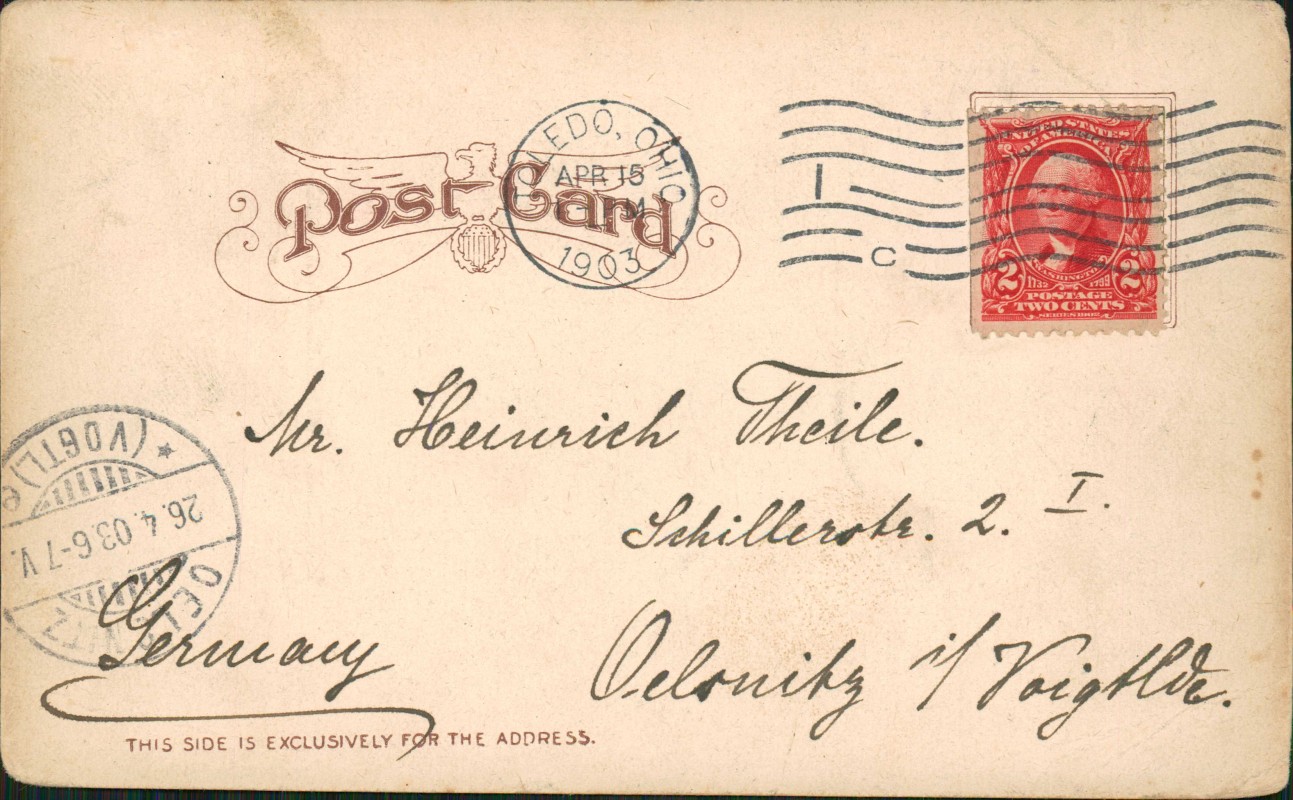 Post Card
TOLEDO, OHIO
APR 15
1903
1
C
UNITED STATES
OF AMERICA
WASHINGTON
1732 1799
2 2
POSTAGE
TWO CENTS
SERIES 1902
Mr. Heinrich Theile.
Schillerstr. 2. I.
Oelsnitz i/ Voigtlde.
Germany
OELSNITZ
26.4.03.6-7 V.
* (VOGTL) e
THIS SIDE IS EXCLUSIVELY FOR THE ADDRESS.